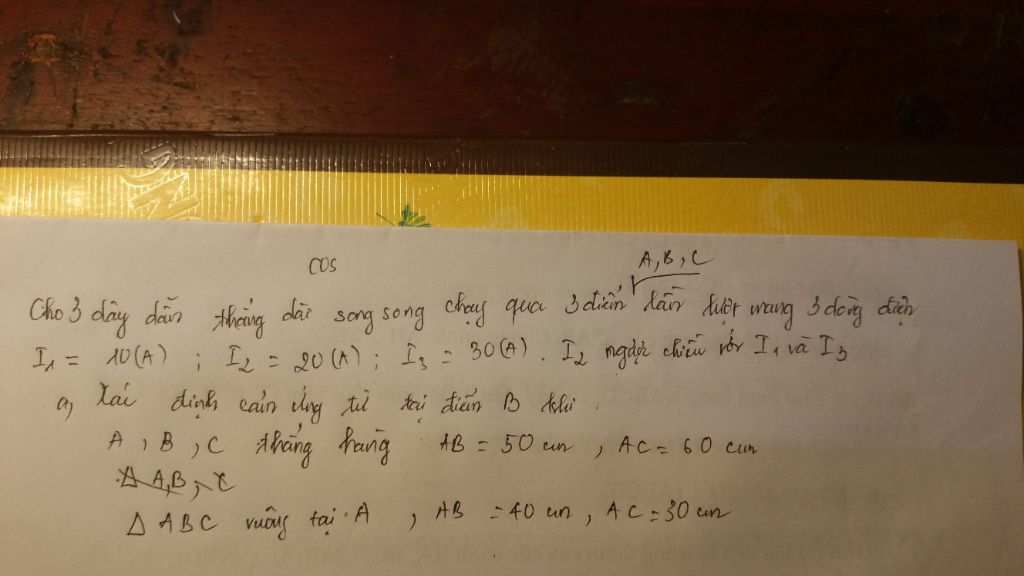 cos
A, B, C
Cho 3 dây dẫn thẳng dài song song chạy qua 3 điểm lần lượt mang 3 dòng điện
I1 = 10(A) ; I2 = 20(A) ; I3 = 30(A) . I2 ngược chiều với I1 và I3
a, Xác định cảm ứng từ tại điểm B khi .
A , B , C thẳng hàng AB = 50 cm , AC = 60 cm
Δ A,B, C
Δ ABC vuông tại A , AB = 40 cm , AC = 30 cm